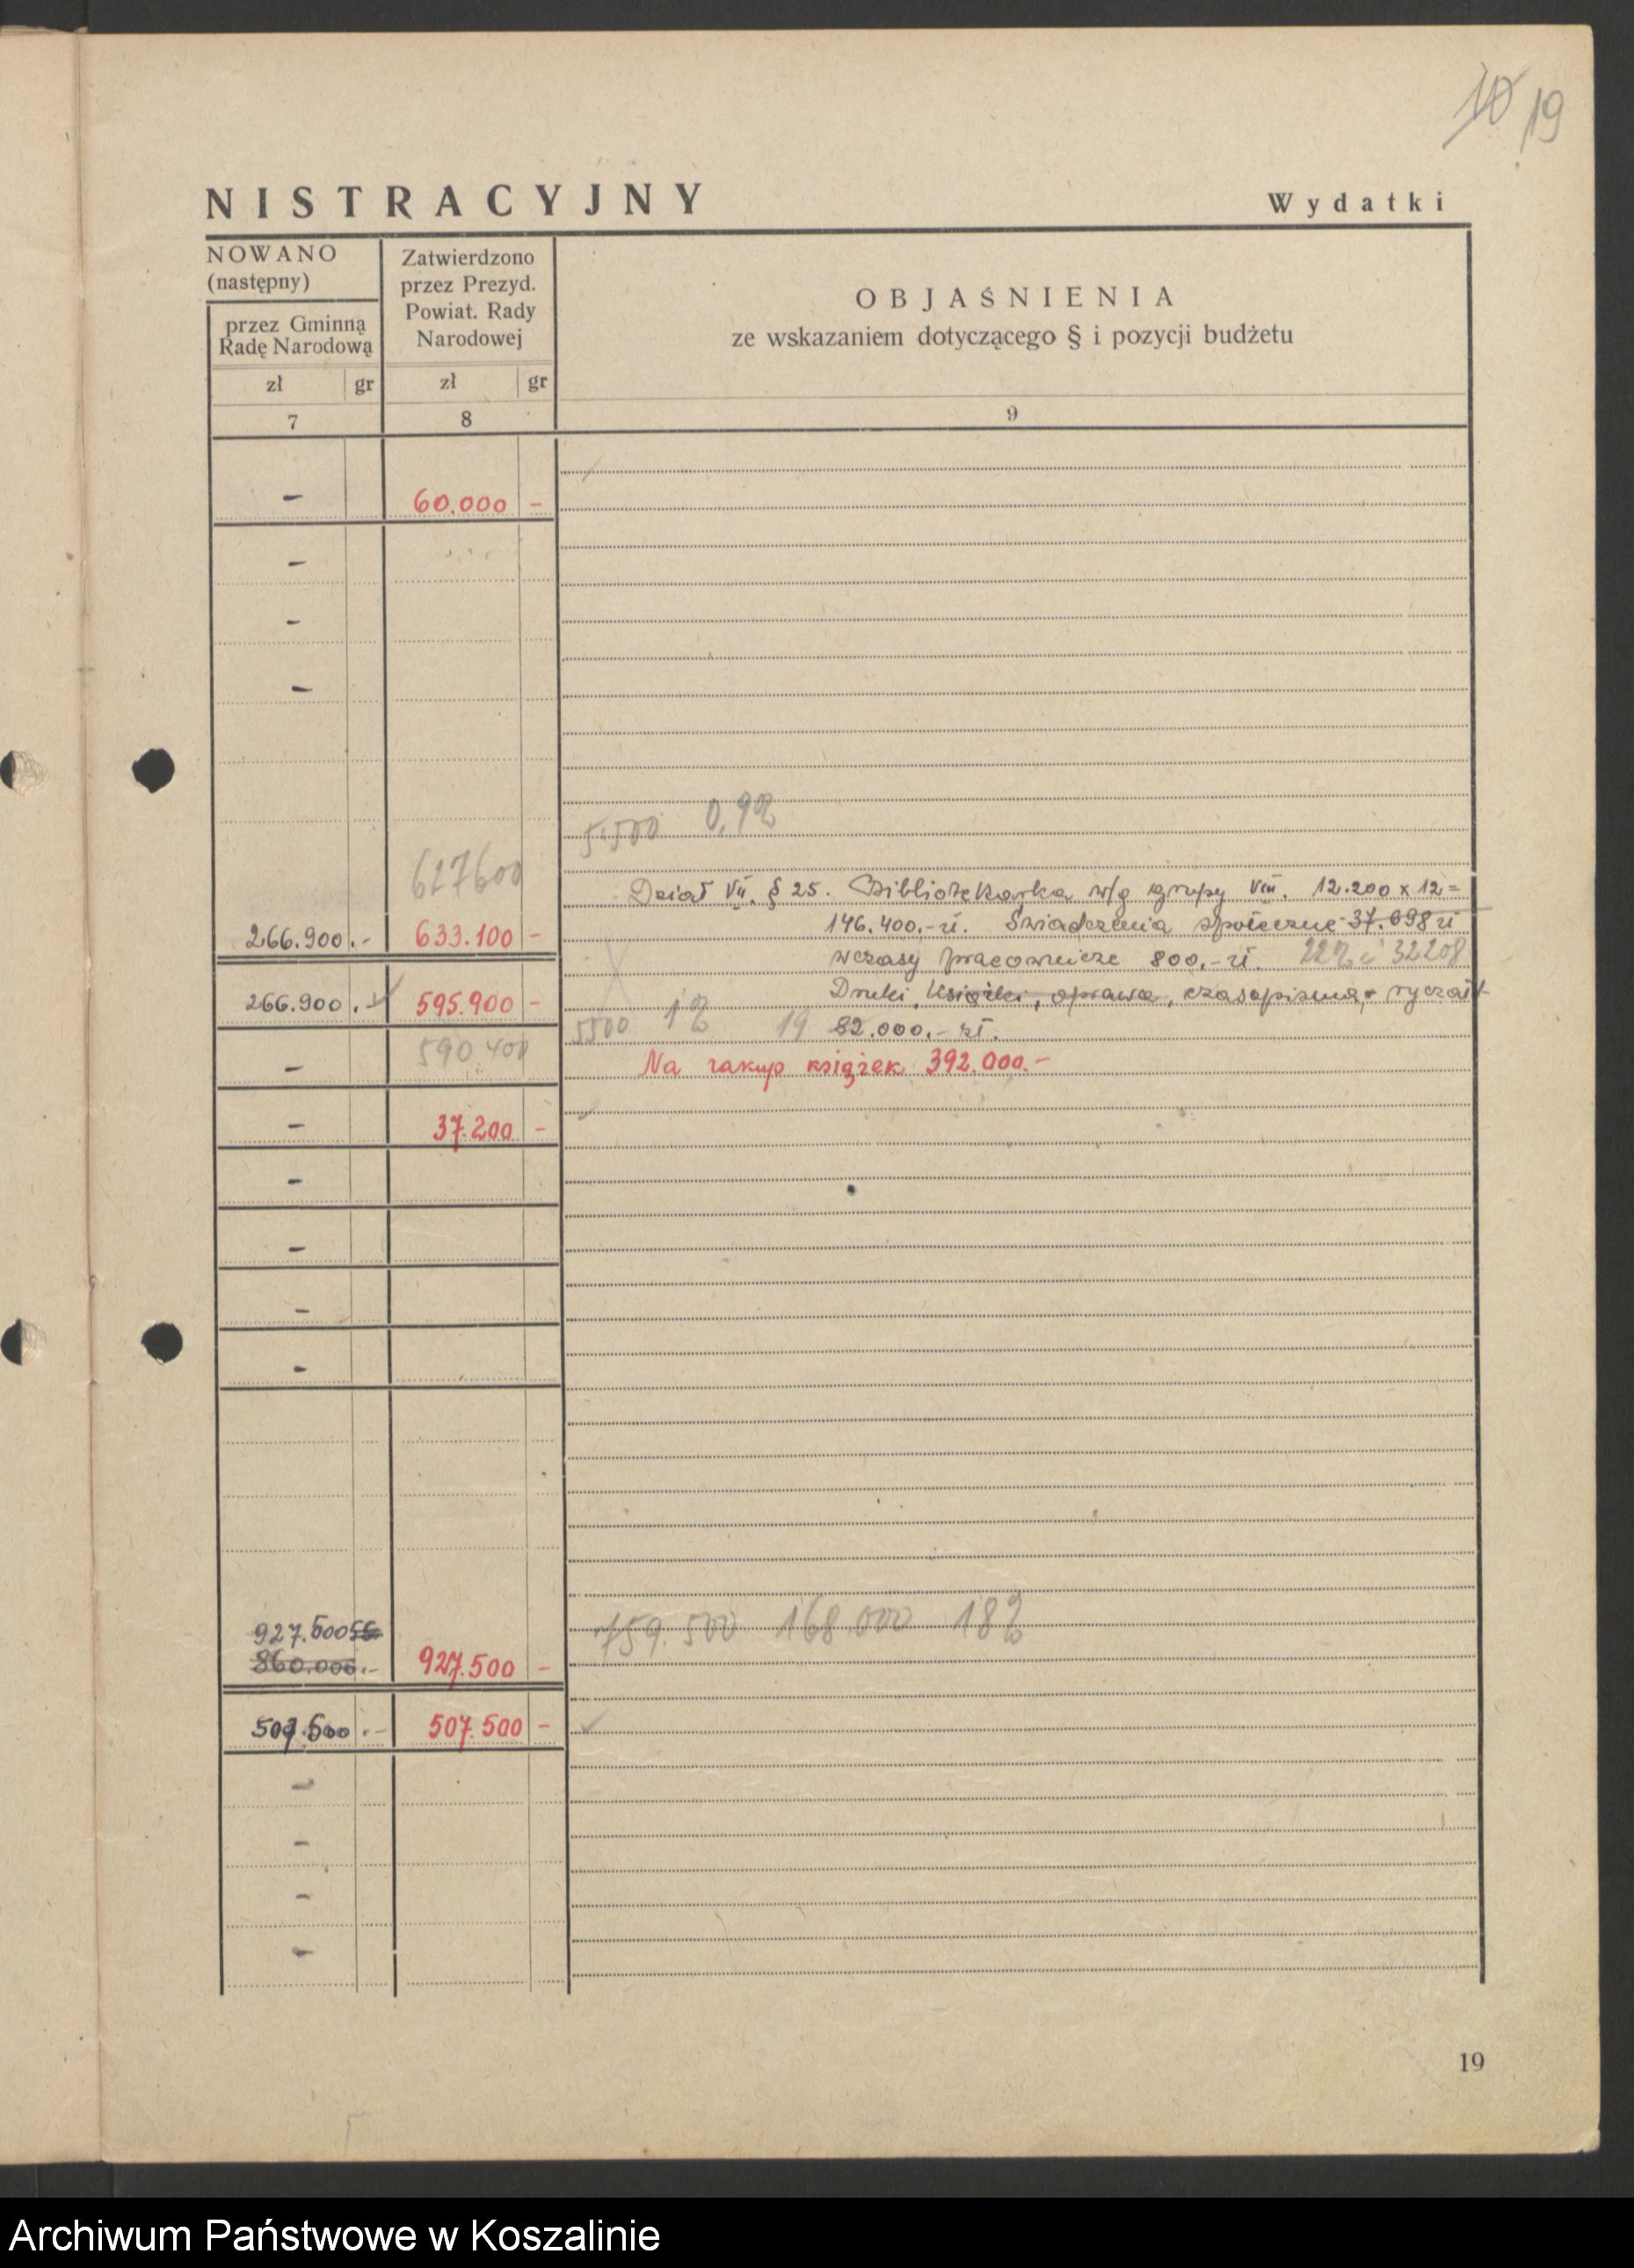 10 19
NISTRACYJNY Wydatki
NOWANO
(następny)
przez Gminną
Radę Narodową
Zatwierdzono
przez Prezyd.
Powiat. Rady
Narodowej
OBJAŚNIENIA
ze wskazaniem dotyczącego § i pozycji budżetu
zł gr zł gr
7 8 9
- 60.000 -
-
-
-
5.500 0,9%
627600
Dział VII. § 25. Bibliotekarka w/g grupy VIII. 12.200 x 12 =
146.400.- zł. Świadczenia społeczne 37.698 zł
266.900.- 633.100 -
wczasy pracownicze 800.- zł. 22% i 32208
Druki, książki, oprawa, czasopisma, ryczałt
266.900.- 595.900 -
5500 1% 19 82.000.- zł.
- 590.400
Na zakup książek 392.000.-
- 37.200 -
-
-
-
-
927.500
759.500 168.000 18%
860.000.- 927.500 -
507.500.- 507.500 -
-
-
-
-
19
Archiwum Państwowe w Koszalinie